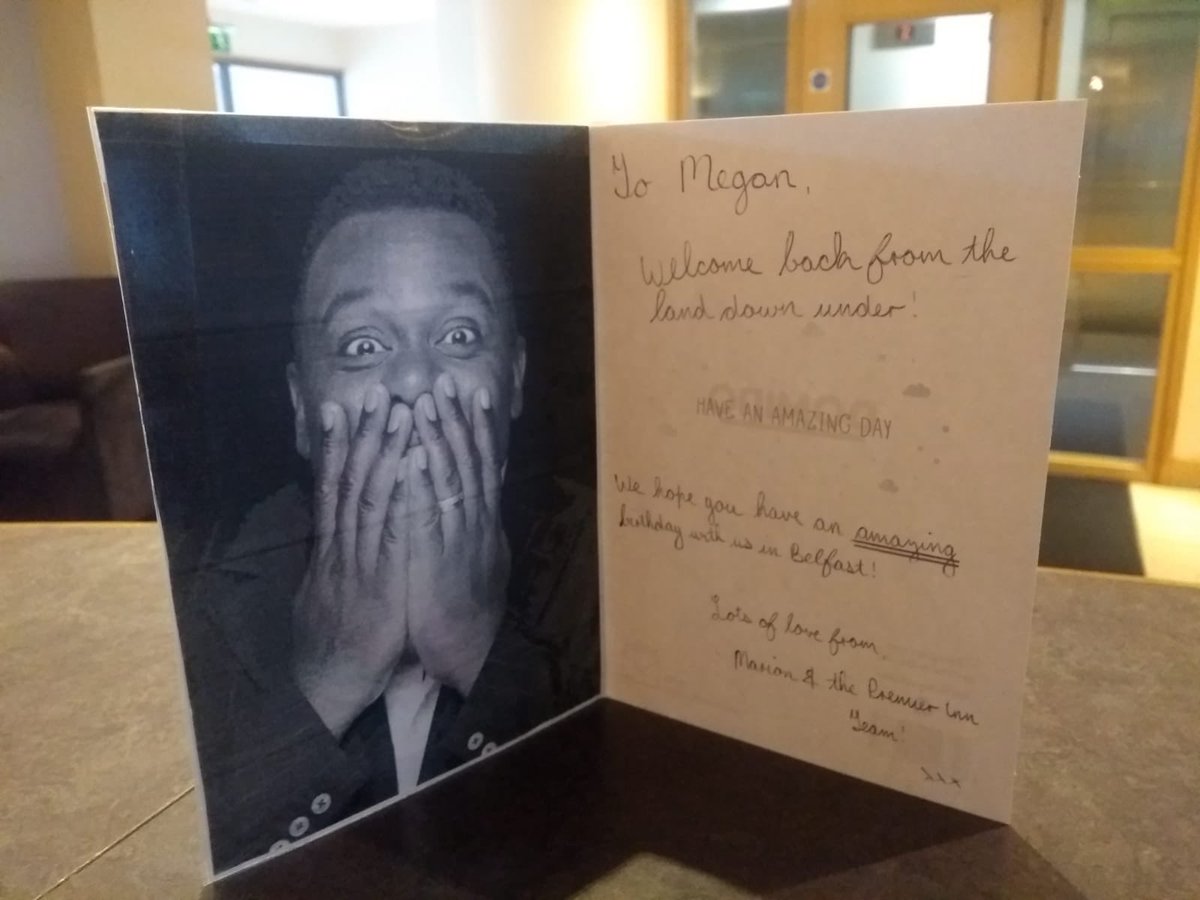 To Megan,
Welcome back from the
land down under!
HAVE AN AMAZING DAY
We hope you have an amazing
birthday with us in Belfast!
Lots of love from,
Marion & the Premier Inn
Team!
xxx